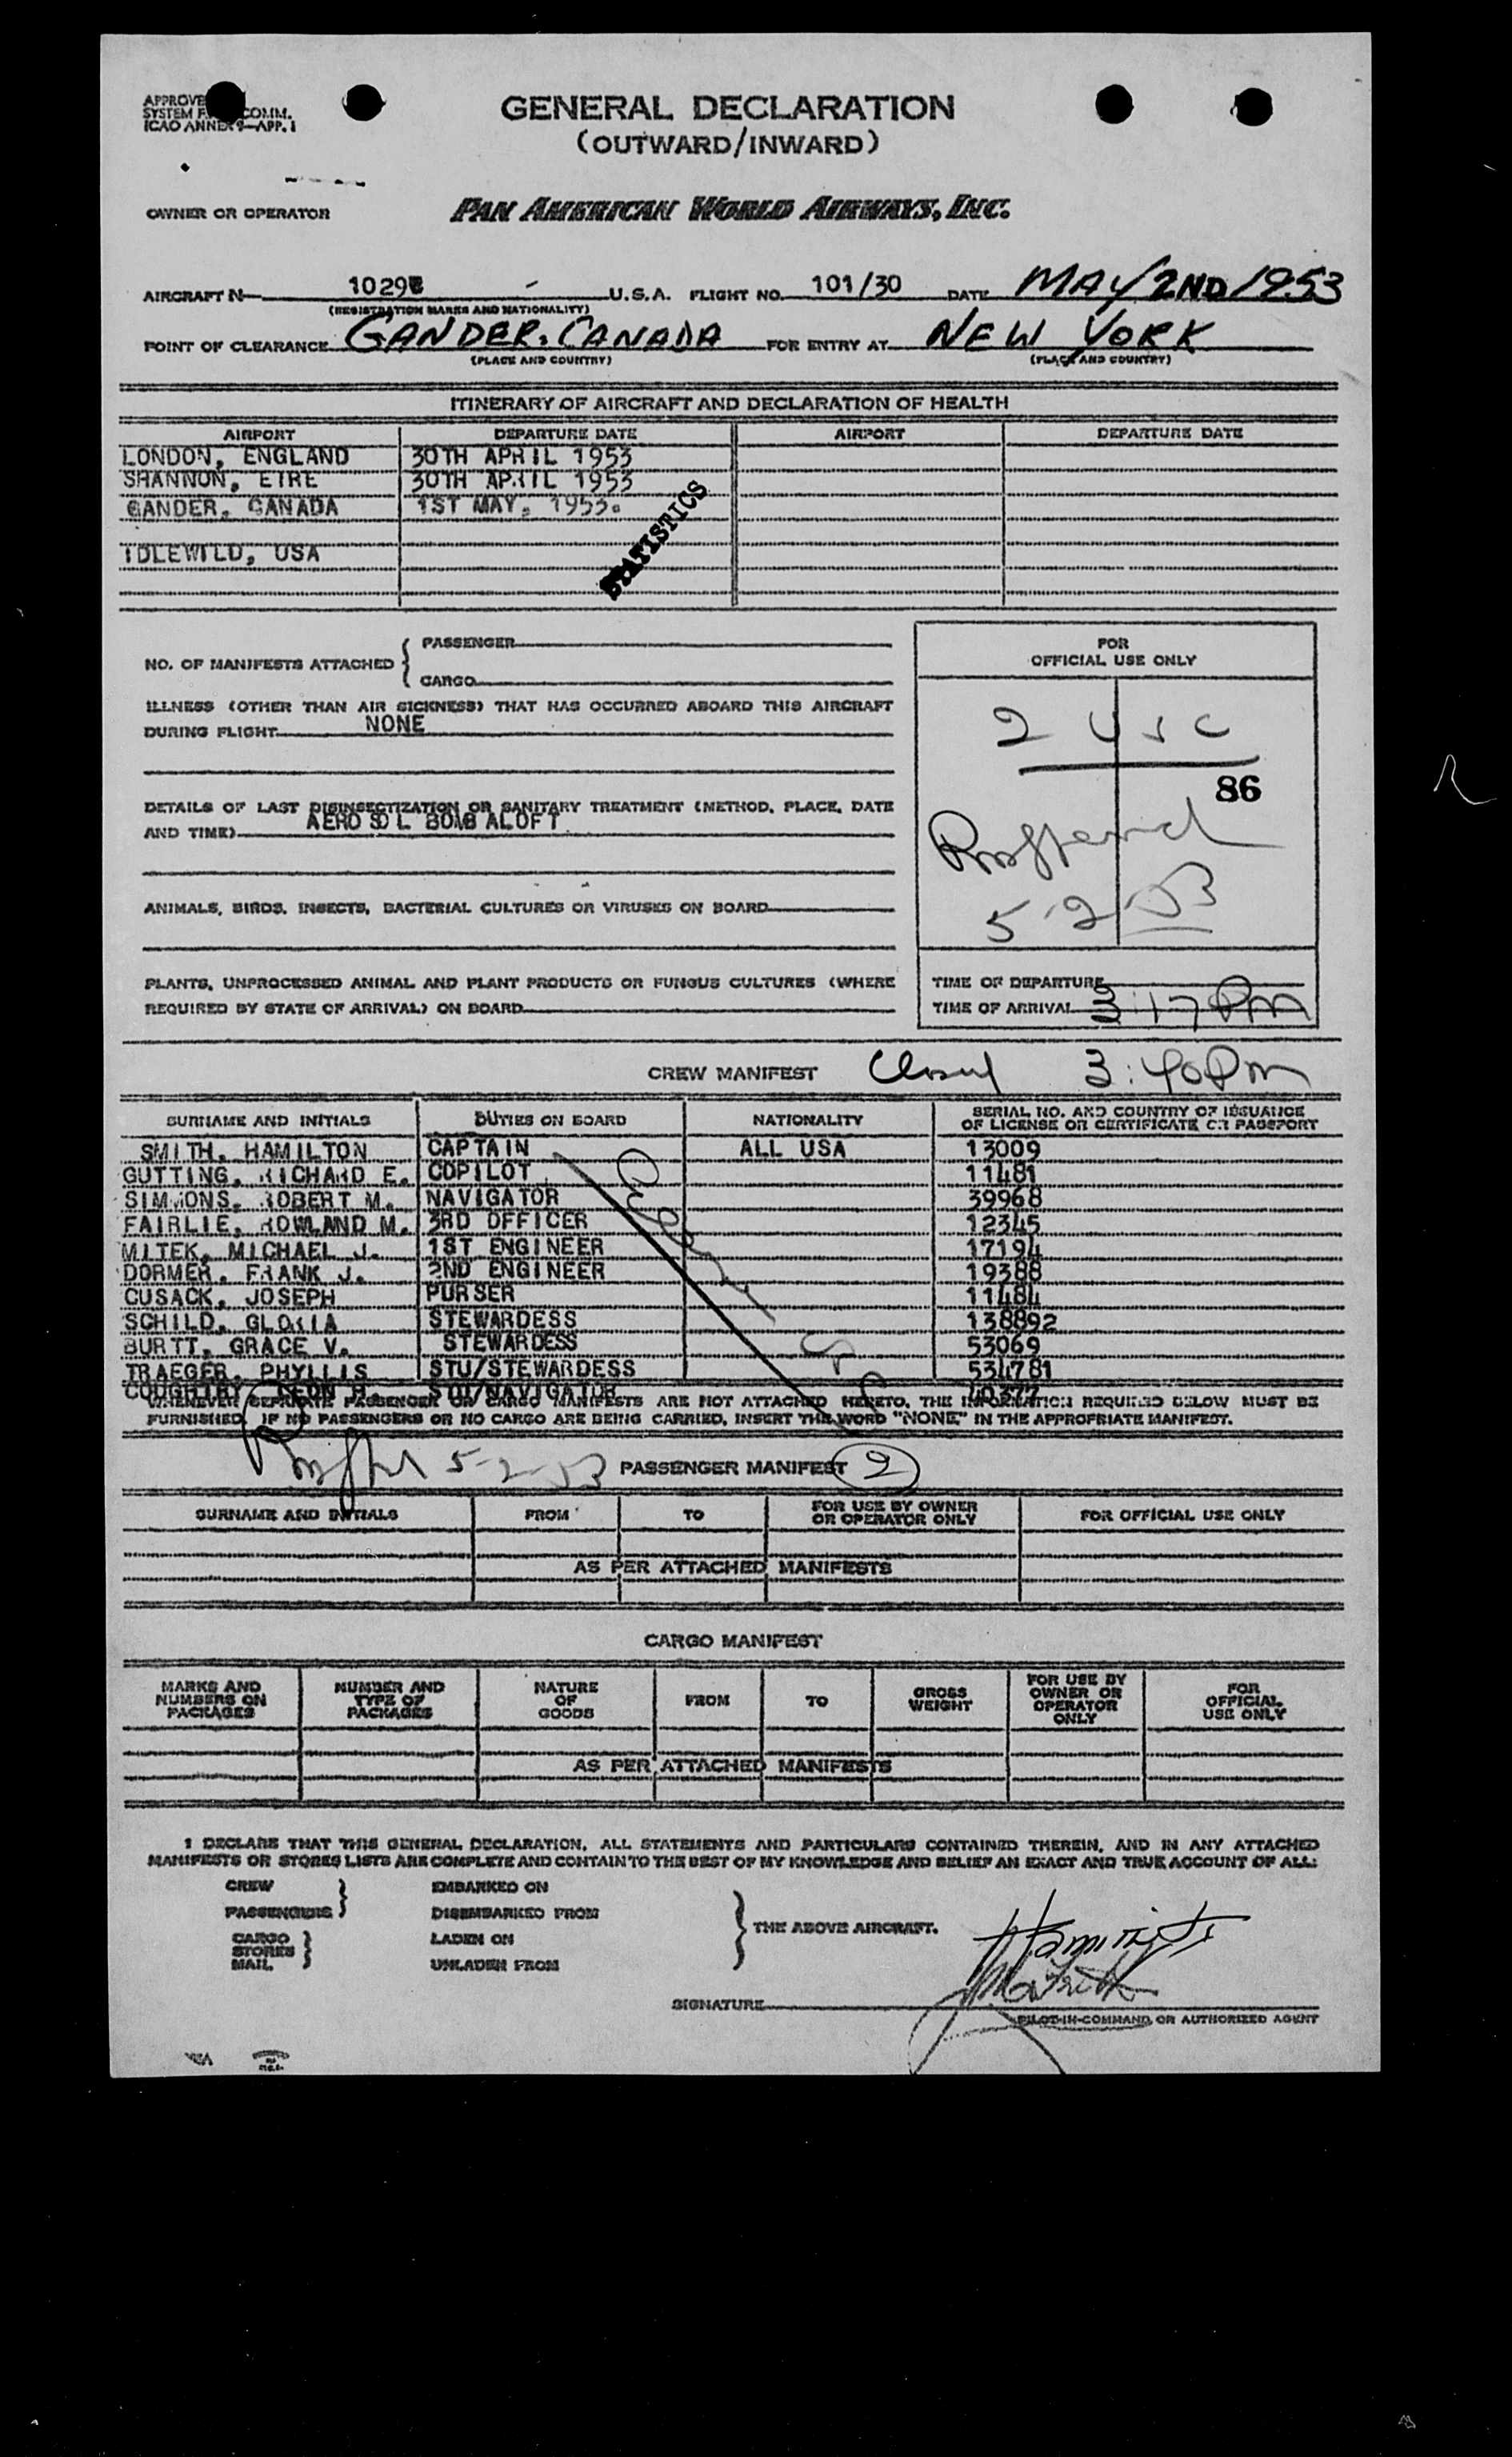 GENERAL DECLARATION
(OUTWARD/INWARD)
APPROVE
SYSTEM F COMM.
ICAO ANNEX 9—APP. 1
OWNER OR OPERATOR PAN AMERICAN WORLD AIRWAYS, INC.
AIRCRAFT N— 1029 U.S.A. FLIGHT NO. 101/30 DATE MAY 2ND 1953
(REGISTRATION MARKS AND NATIONALITY)
POINT OF CLEARANCE GANDER, CANADA FOR ENTRY AT NEW YORK
(PLACE AND COUNTRY) (PLACE AND COUNTRY)
ITINERARY OF AIRCRAFT AND DECLARATION OF HEALTH
AIRPORT DEPARTURE DATE AIRPORT DEPARTURE DATE
LONDON, ENGLAND 30TH APRIL 1953
SHANNON, EIRE 30TH APRIL 1953
GANDER, CANADA 1ST MAY, 1953.
STATISTICS
IDLEWILD, USA
NO. OF MANIFESTS ATTACHED { PASSENGER
CARGO
FOR
OFFICIAL USE ONLY
ILLNESS (OTHER THAN AIR SICKNESS) THAT HAS OCCURRED ABOARD THIS AIRCRAFT
DURING FLIGHT NONE
2 USC
86
DETAILS OF LAST DISINSECTIZATION OR SANITARY TREATMENT (METHOD, PLACE, DATE
AND TIME) AEROSOL BOMB ALOFT
5-2-53
ANIMALS, BIRDS, INSECTS, BACTERIAL CULTURES OR VIRUSES ON BOARD
PLANTS, UNPROCESSED ANIMAL AND PLANT PRODUCTS OR FUNGUS CULTURES (WHERE
REQUIRED BY STATE OF ARRIVAL) ON BOARD
TIME OF DEPARTURE
TIME OF ARRIVAL 3:17 PM
CREW MANIFEST 3:40 PM
SURNAME AND INITIALS DUTIES ON BOARD NATIONALITY SERIAL NO. AND COUNTRY OF ISSUANCE
OF LICENSE OR CERTIFICATE OR PASSPORT
SMITH, HAMILTON CAPTAIN ALL USA 13009
GUTTING, RICHARD E. COPILOT 11481
SIMMONS, ROBERT M. NAVIGATOR 39968
FAIRLIE, ROWLAND M. 3RD OFFICER 12345
MITEK, MICHAEL J. 1ST ENGINEER 17194
DORMER, FRANK J. 2ND ENGINEER 19388
CUSACK, JOSEPH PURSER 11484
SCHILD, GLORIA STEWARDESS 138892
BURTT, GRACE V. STEWARDESS 53069
TRAEGER, PHYLLIS STU/STEWARDESS 534781
COUGHTRY, LEON H. STU/NAVIGATOR 40377
WHENEVER SEPARATE PASSENGER OR CARGO MANIFESTS ARE NOT ATTACHED HERETO, THE INFORMATION REQUIRED BELOW MUST BE
FURNISHED. IF NO PASSENGERS OR NO CARGO ARE BEING CARRIED, INSERT THE WORD "NONE" IN THE APPROPRIATE MANIFEST.
5-2-53 PASSENGER MANIFEST 2
SURNAME AND INITIALS FROM TO FOR USE BY OWNER
OR OPERATOR ONLY FOR OFFICIAL USE ONLY
AS PER ATTACHED MANIFESTS
CARGO MANIFEST
MARKS AND
NUMBERS ON
PACKAGES
NUMBER AND
TYPE OF
PACKAGES
NATURE
OF
GOODS
FROM
TO
GROSS
WEIGHT
FOR USE BY
OWNER OR
OPERATOR
ONLY
FOR
OFFICIAL
USE ONLY
AS PER ATTACHED MANIFESTS
I DECLARE THAT THIS GENERAL DECLARATION, ALL STATEMENTS AND PARTICULARS CONTAINED THEREIN, AND IN ANY ATTACHED
MANIFESTS OR STORES LISTS ARE COMPLETE AND CONTAIN TO THE BEST OF MY KNOWLEDGE AND BELIEF AN EXACT AND TRUE ACCOUNT OF ALL:
CREW EMBARKED ON
PASSENGERS DISEMBARKED FROM
CARGO LADEN ON
STORES
MAIL UNLADEN FROM
THE ABOVE AIRCRAFT.
SIGNATURE
PILOT-IN-COMMAND OR AUTHORIZED AGENT